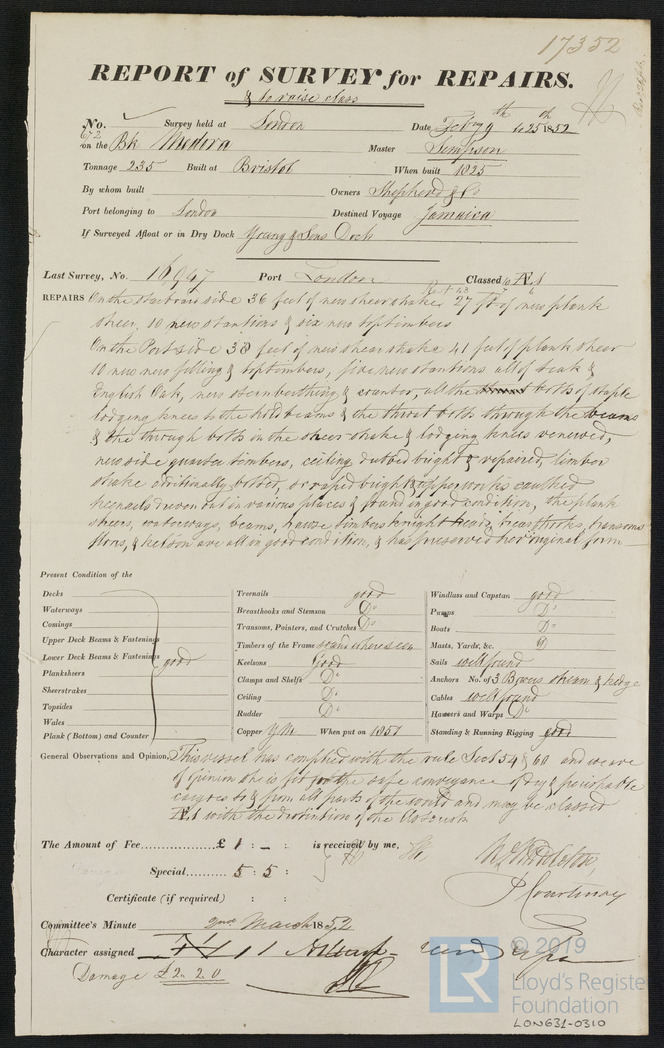 17352
REPORT of SURVEY for REPAIRS.
& to raise class
No. Survey held at London Date Feby 9th to 25th 1852
672
on the Bk Medora Master Simpson
Tonnage 235 Built at Bristol When built 1825
By whom built Owners Shepherd & Co
Port belonging to London Destined Voyage Jamaica
If Surveyed Afloat or in Dry Dock Young & Sons Dock
Last Survey, No. 16947 Port London Classed Æ1
REPAIRS On the starboard side 36 feet of new sheerstrake 27 ft of new plank
sheer, 10 new stantions & six new toptimbers
On the Port side 38 feet of new sheerstrake 41 feet of plank sheer
10 new filling & toptimbers, five new stantions all of teak &
English Oak, new stern berthing & counter, all the bolts of staple
lodging knees to the hold beams & the throat bolts through the beams
& the through bolts in the sheerstrake & lodging knees renewed,
new side quarter timbers, ceiling dubbed bright & repaired, limber
strake additionally bolted, scraped bright, topper works caulked
treenails driven out in various places & found in good condition, the plank
sheers, waterways, beams, hawse timbers knight heads, breasthooks, transoms
floors, & kelson are all in good condition, & has preserved her original form
Present Condition of the
Decks
Waterways
Comings
Upper Deck Beams & Fastenings
Lower Deck Beams & Fastenings good
Planksheers
Sheerstrakes
Topsides
Wales
Plank (Bottom) and Counter
Treenails good
Breasthooks and Stemson Do
Transoms, Pointers, and Crutches Do
Timbers of the Frame sound where seen
Keelsons Good
Clamps and Shelfs Do
Ceiling Do
Rudder Do
Copper Y.M. When put on 1851
Windlass and Capstan good
Pumps Do
Boats Do
Masts, Yards, &c. Do
Sails well found
Anchors No. of 3 Bowers stream & kedge
Cables well found
Hawsers and Warps Do
Standing & Running Rigging good
General Observations and Opinion, This vessel has complied with the rule Sect 54 & 60 and we are
of opinion she is fit for the safe conveyance of dry & perishable
cargoes to & from all parts of the world and may be classed
Æ1 with the distinction of the Asterisk
The Amount of Fee £ 1 : - : is received by me,
Special 5 : 5 :
Certificate (if required) : :
W Middleton,
J Courtenay
Committee's Minute 2nd March 1852
Character assigned
Damage £2.2.0
LR
© 2019
Lloyd's Register
Foundation
LON631-0310